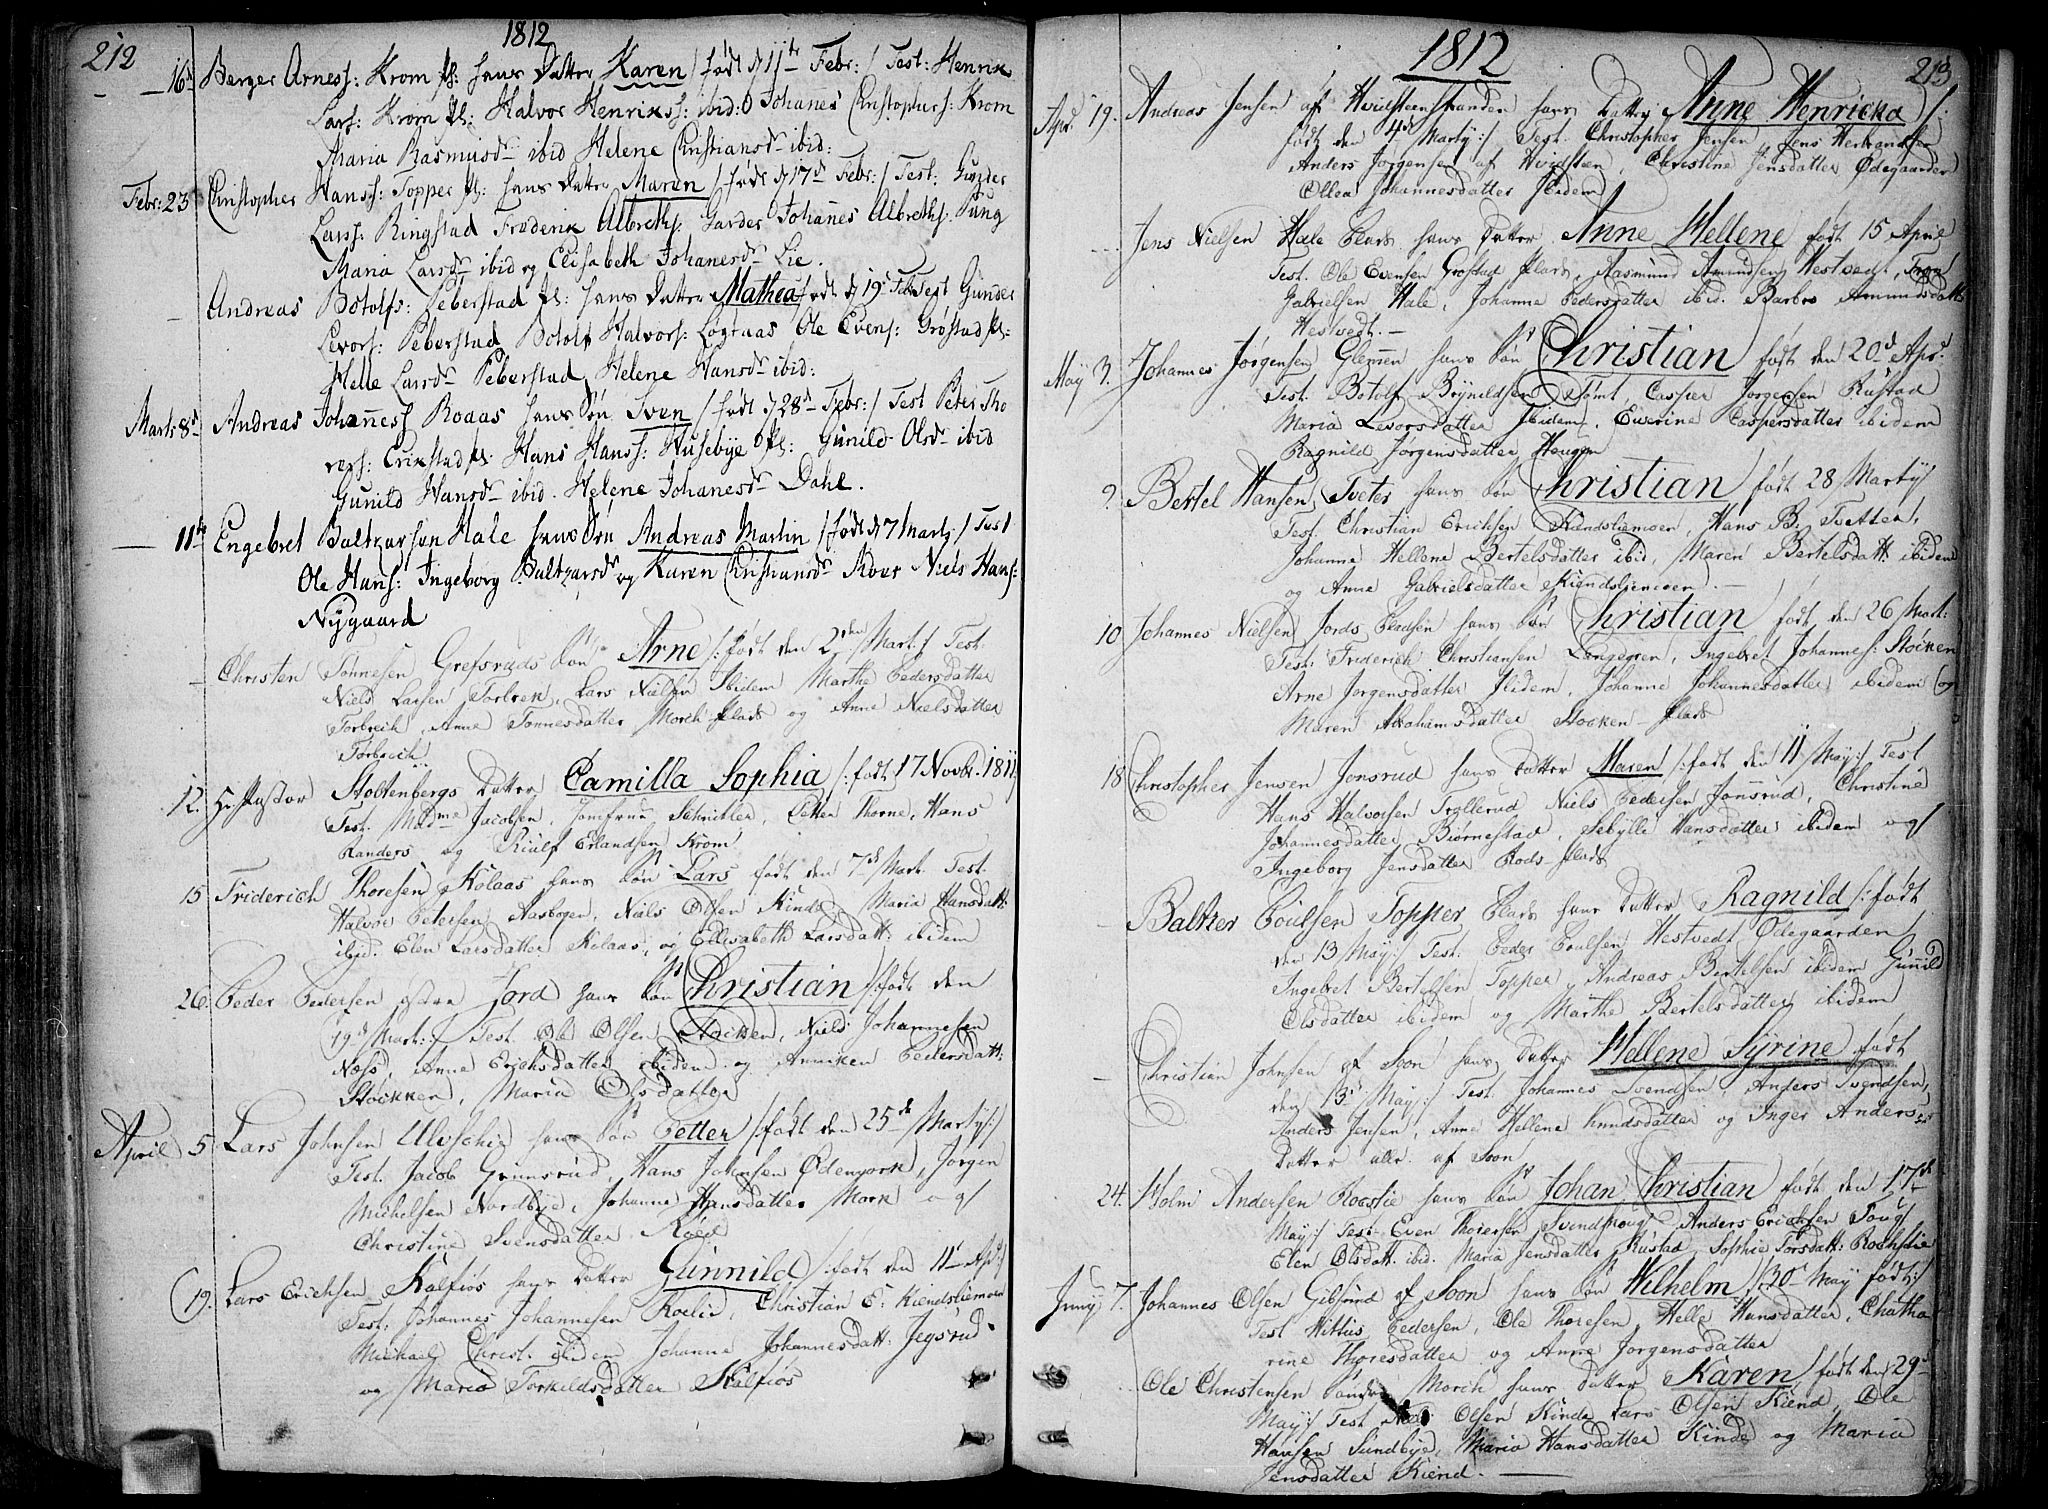 212
1812
16d Berger Arness: Krom Pl: hans Datter Karen /født d 11te Febr:/ Test: Henrik
Larss: Krom Pl: Halvor Henrikss: ibid: Johanes Christophers: Krom
Maria Rasmusdr ibid Helene Christiansdr ibid:
Febr: 23 Christopher Hanss: Topper Pl: hans Datter Maren /født d 17d Febr:/ Test: Gunder
Larss: Ringstad Frederik Albreths: Garder Johanes Albreths. Pung
Maria Larsdr ibid og Elisabeth Johanesdr Lie.
Andreas Botolfs: Peberstad Pl: hans Datter Mathea født d 19 Feb Test Gunder
Levors: Peberstad Botolf Halvors: Løgtaas Ole Evens: Grøstad Pl:
Helle Larsdr Peberstad, Helene Hansdr ibid:
Marts 8d Andreas Johanness Roaas hans Søn Sven /født d 28d Febr:/ Test Peter Tho
ress: Erikstad Pl: Hans Hanss: Husebye Pl: Gunild Olsdr ibid
Gunild Hansdr ibid. Helene Johanesdr Dahl.
11te Engebret Baltzersøn Hale hans Søn Andreas Martin /født d 7 Marts/ Test
Ole Hans: Ingeborg Baltzarsdr og Karen Christiansdr Roer Niels Hans:
Nygaard
Christen Tønnesen Grefsruds Søn Arne /: født den 2den Mart:/ Test.
Niels Larsen Torbrek, Lars Nielsen Ibidem Marthe Pedersdatter
Torbrech, Anne Tonnesdatter Morch Plads og Anne Nielsdatter
Torbreich.
12. Hr Pastor Stoltenbergs Datter Camilla Sophia /: født 17 Novbr. 1811
Test. Madme Jacobsen, Jomfrue Schnitler, Petter Thorne, Hans
Randers og Rialf Erlandsen Krom
15 Friderich Thoresen Kolaas hans Søn Lars født den 7de Mart. Test.
Halvor Petersen Aasbogen, Niels Olsen Kinde Maria Hansdatt:
ibid. Elen Larsdatter Kolaas, og Ellisabeth Larsdatt: ibidem
26. Peder Pedersen Jord hans Søn Christian /: født den
19d Mart:/ Test. Ole Olsen Stocken, Niels Johannesen
Næss, Anne Erichsdatter ibidem og Anniken Pedersdatt:
Stockken, Maria Olsdatter
April 5 Lars Johnsen Ulvschie hans Søn Petter /: født den 25de Marty:/
Test. Jacob Grimsrud, Hans Johnsen Ødemork, Jørgen
Michelsen Nordbye, Johanne Hansdatter Mork og
Christine Svensdatter Røed
19. Lars Erichsen Kalfios hans Datter Gunnild /: født den 11t Apr:/
Test: Johannes Johannesen Roelie, Christian E. Kiendsliemoen
Michael Christ. ibidem Johanne Johannesdatt: Jegsrud
og Maria Torkildsdatter Kalfios

1812
213
Apr: 19. Andreas Jensen af Hvidsteenstranden hans Datter Anne Henricka /:
født den 4d Marty:/ Test. Christopher Jensen Jens Herbrandsen
Anders Jørgensen af Hvidsteen, Christine Jensdatter Ødegaarden
Ollea Johannesdatter Ibidem
Jens Nielsen Hale Plads hans Datter Anne Hellene født 15 April
Test. Ole Evensen Grøstad Plads, Rasmund Amundsen Hestvedt,
Gabrielsen Hale, Johanne Pedersdatter ibid. Barbro Amundsdatt:
Hestvedt. —
May 3. Johannes Jørgensen Glemen hans Søn Christian født den 20d Apr.
Test. Botolf Brynildsen Tømt, Casper Jørgensen Rustad
Maria Levorsdatter Ibidem, Everine Caspersdatter ibidem
Ragnild Jørgensdatter Haugen
9 Bertel Hansen Tveter hans Søn Christian født 28 Marty
Test. Christian Erichsen Kiendsliemoen, Hans B. Tvetter,
Johanne Hellene Bertelsdatter ibid, Maren Bertelsdatt ibidem
og Anne Gabrielsdatter Kiendsliemoen. —
10 Johannes Nielsen Jords Pladsen hans Søn Christian født den 26 Mart:
Test: Friderich Christiansen Langegren, Ingebret Johannes: Stocken
Arne Jørgensdatter Ibidem, Johanne Johannesdatter ibidem og
Maren Abrahamsdatter Stocken Plads
18 Christopher Jensen Jonsrud hans Datter Maren /: født den 11 May:/ Test
Hans Halvorsen Trollerud Niels Pedersen Jonsrud, Christine
Johannesdatter Biørnestad, Sebylle Hansdatter ibidem og
Ingeborg Jensdatter Rods Plads
Baltzer Poulsen Topper Plads hans Datter Ragnild /: født
den 13 May:/ Test. Peder Poulsen Hestvedt Ødegaarden
Ingebret Bertelsen Topper, Andreas Bertelsen ibidem Gunild
Olsdatter ibidem og Marthe Bertelsdatter ibidem
Christian Johnsen af Soon hans Datter Hellene Syrine født
den 13d May:/ Test. Johannes Svendsen, Anders Svendsen,
Anders Jensen, Anne Hellene Knudsdatter og Inger Anders:
Datter alle af Soon
24. Holm Andersen Roestie hans Søn Johan Christian født den 17de
May:/ Test. Even Thoresen Svindhoug Anders Erichsen Toug
Elen Olsdatt. ibid. Maria Jensdatter Rustad, Sophie Torsdatt: Rochstie
Juny 7. Johannes Olsen Gibsund af Soon hans Søn Wilhelm, /30t May født:/
Test Hittus Pedersen, Ole Thoresen, Helle Hansdatter, Chatha
rine Thoresdatter og Anne Jørgensdatter
Ole Christensen Morch hans Datter Karen /født den 29
May:/ Test Niels Olsen Kinde Lars Olsen Kiend, Ole
Hansen Sundbye, Maria Hansdatter Kinde og Maria
Jensdatter Kiend. —